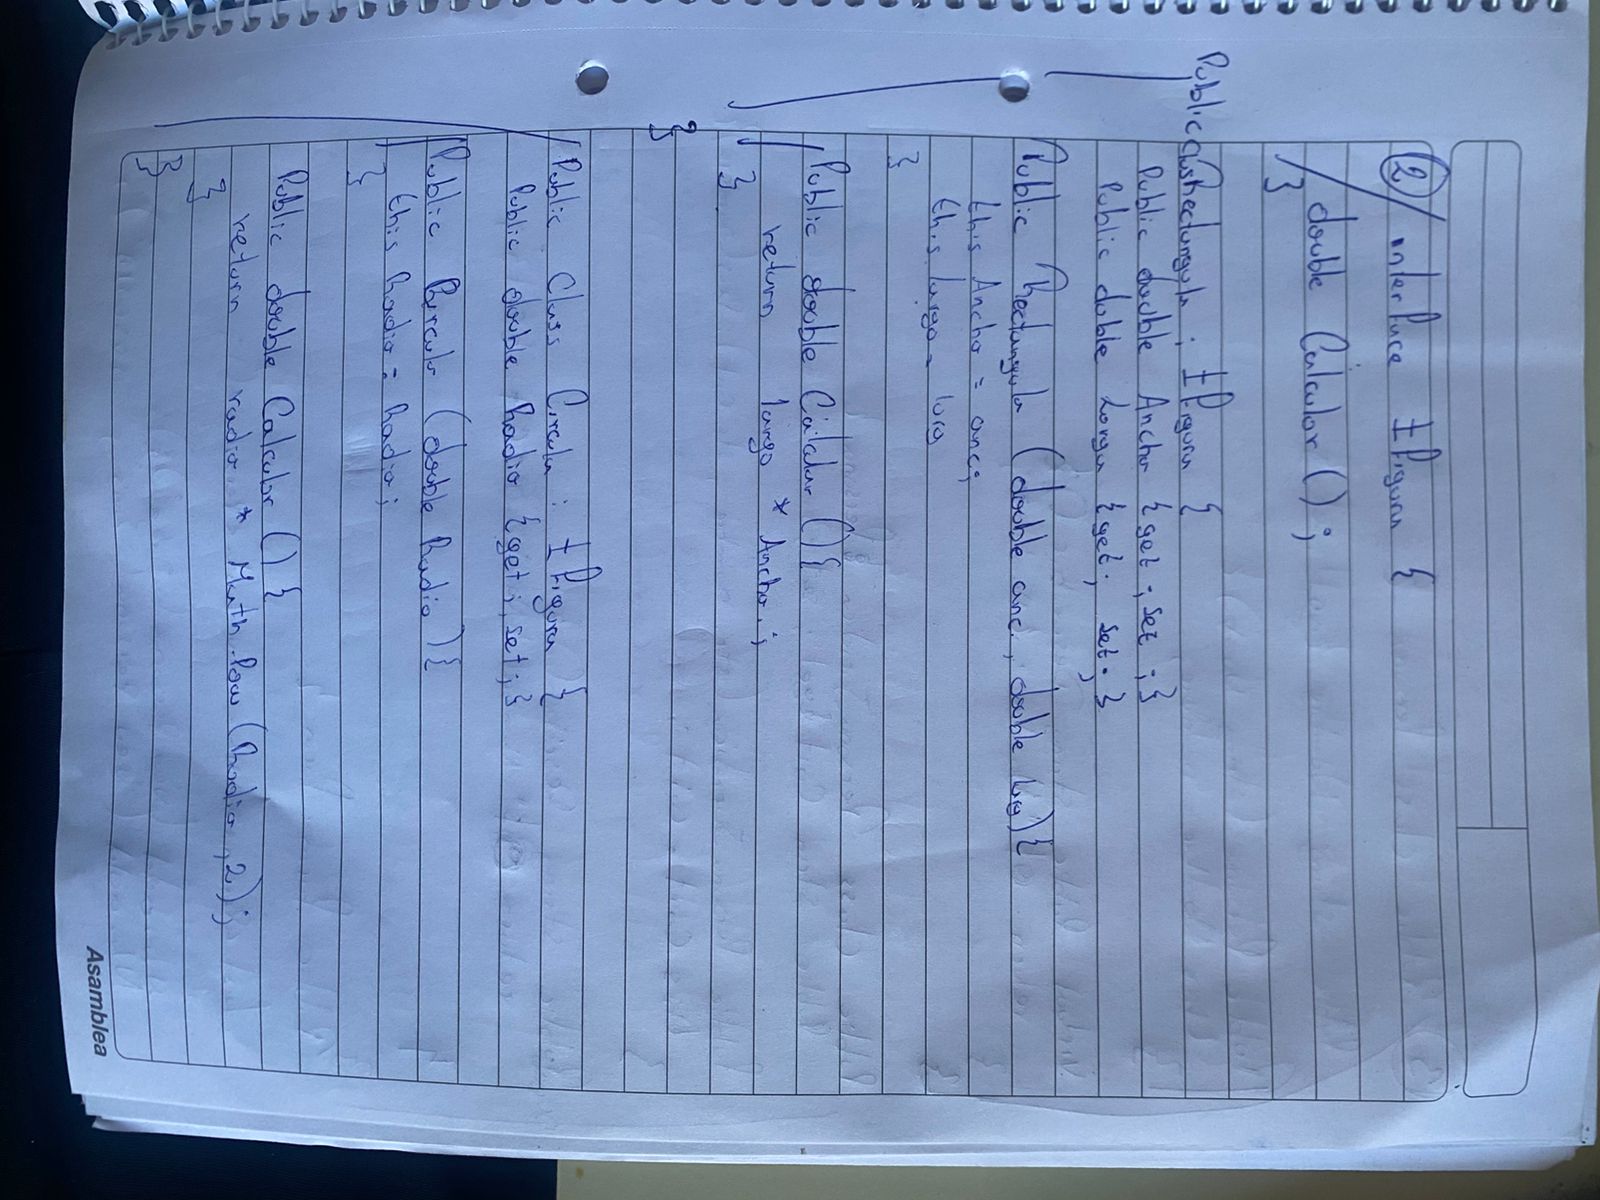 ② interface IFigura {
double Calcular () ;
}
Public Class Rectangulo : IFigura {
Public double Ancho { get ; set ; }
Public double Largo { get ; set ; }
Public Rectangulo (double anc , double lrg) {
this Ancho = anc ;
this largo =
}
Public double Calcular () {
return largo * Ancho ;
}
}
Public Class Circulo : IFigura {
Public double Radio { get ; set ; }
Public Circulo (double Radio) {
this Radio = Radio ;
}
Public double Calcular () {
return radio * Math.Pow (Radio , 2) ;
}
}
Asamblea